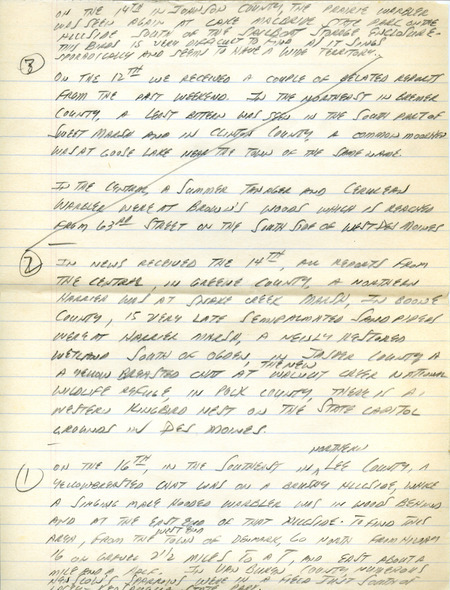 ON THE 14TH IN JOHNSON COUNTY, THE PRAIRIE WARBLER
WAS SEEN AGAIN AT LAKE MACBRIDE STATE PARK ON THE
HILLSIDE SOUTH OF THE SAILBOAT STORAGE ENCLOSURE.
THIS BIRD IS VERY DIFFICULT TO FIND AS IT SINGS
SPORADICALLY AND SEEMS TO HAVE A WIDE TERRITORY.
3
ON THE 12TH WE RECEIVED A COUPLE OF BELATED REPORTS
FROM THE PAST WEEKEND. IN THE NORTHEAST IN BREMER
COUNTY, A LEAST BITTERN WAS SEEN IN THE SOUTH PART OF
SWEET MARSH AND IN CLINTON COUNTY, A COMMON MOORHEN
WAS AT GOOSE LAKE NEAR THE TOWN OF THE SAME NAME.
IN THE CENTRAL, A SUMMER TANAGER AND CERULEAN
WARBLER WERE AT BROWN'S WOODS WHICH IS REACHED
FROM 63RD STREET ON THE SOUTH SIDE OF WEST DES MOINES
2
IN NEWS RECEIVED THE 14TH, ALL REPORTS FROM
THE CENTRAL, IN GREENE COUNTY, A NORTHERN
HARRIER WAS AT SNAKE CREEK MARSH, IN BOONE
COUNTY, 15 VERY LATE SEMIPALMATED SANDPIPERS
WERE AT HARRIER MARSH, A NEWLY RESTORED
WETLAND SOUTH OF OGDEN, IN JASPER COUNTY A
A YELLOW BREASTED CHAT AT THE NEW WALNUT CREEK NATIONAL
WILDLIFE REFUGE, IN POLK COUNTY, THERE IS A
WESTERN KINGBIRD NEST ON THE STATE CAPITOL
GROUNDS IN DES MOINES.
1
ON THE 16TH, IN THE SOUTHEAST IN NORTHERN LEE COUNTY, A
YELLOWBREASTED CHAT WAS ON A BRUSHY HILLSIDE, WHILE
A SINGING MALE HOODED WARBLER WAS IN WOODS BEHIND
AND AT THE EAST END OF THAT HILLSIDE. TO FIND THIS
AREA, FROM THE WEST END TOWN OF DENMARK, GO NORTH FROM HIGHWAY
16 ON GRAVEL 2 1/2 MILES TO A T, AND EAST ABOUT A
MILE AND A HALF. IN VAN BUREN COUNTY NUMEROUS
HENSLOWS SPARROWS WERE IN A FIELD JUST SOUTH OF
STATE PARK.